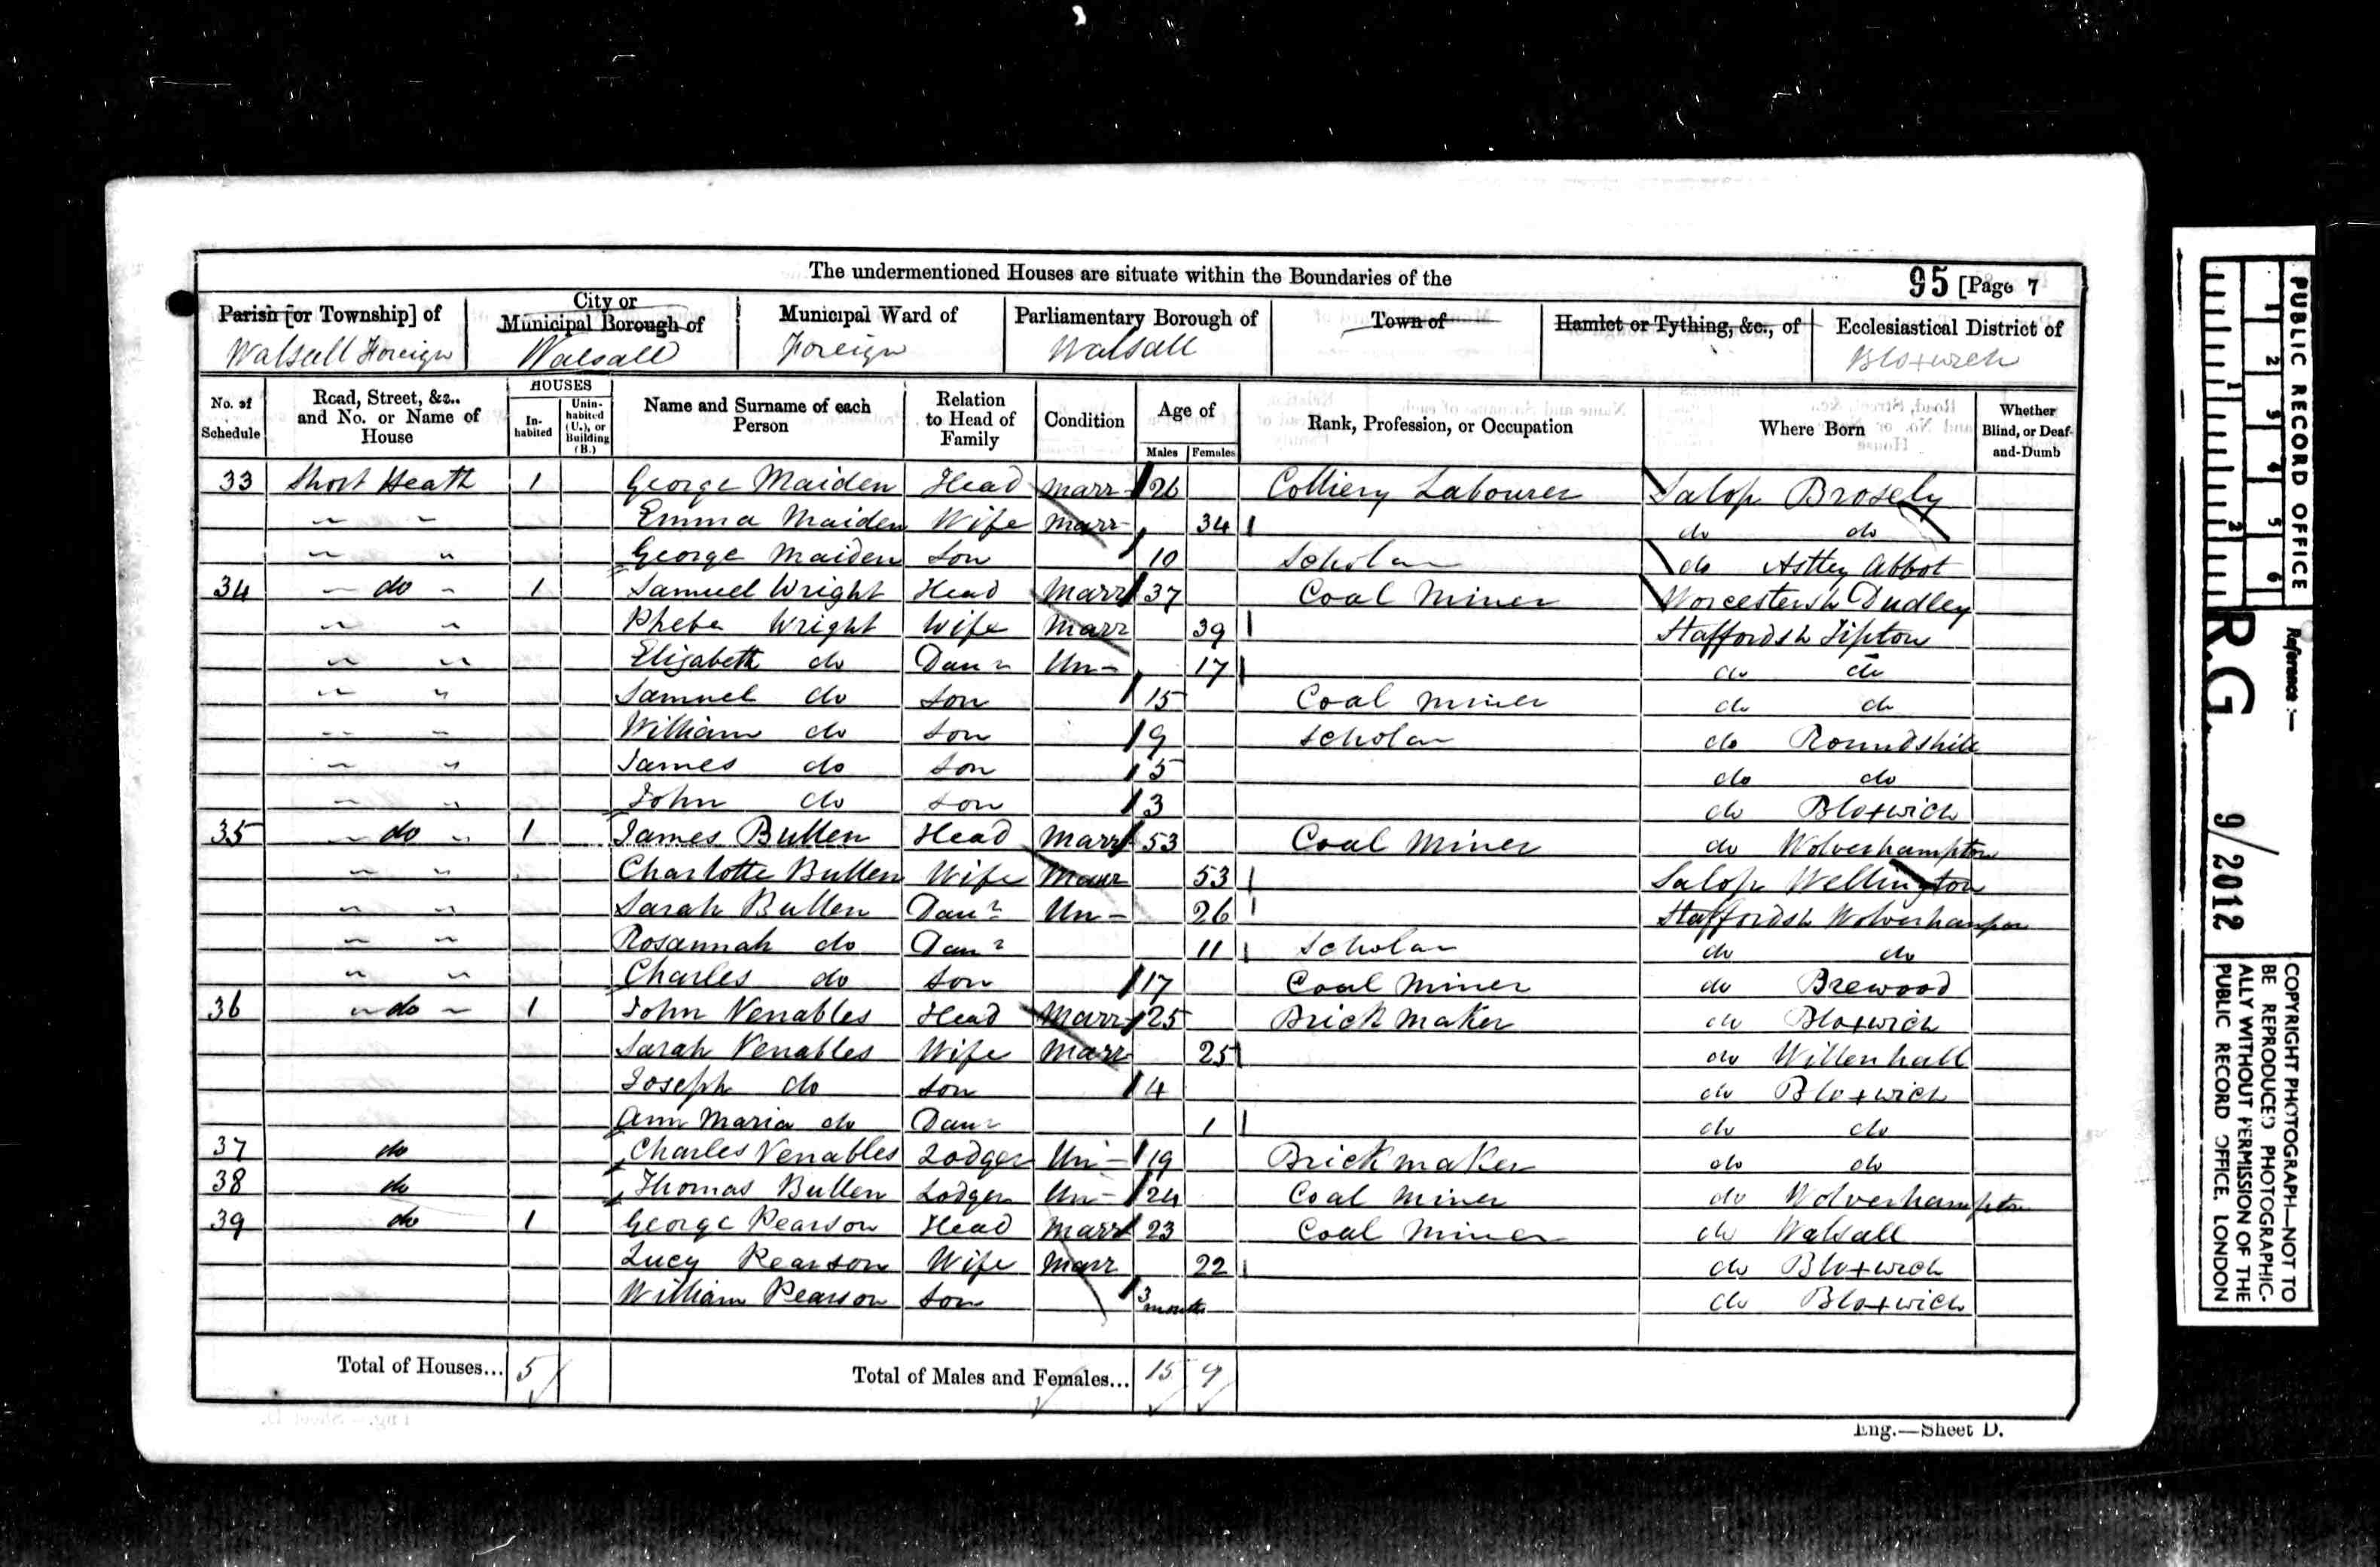 The undermentioned Houses are situate within the Boundaries of the 95 [Page 7
Parish [or Township] of City or Municipal Borough of Municipal Ward of Parliamentary Borough of Town of Hamlet or Tything, &c., of Ecclesiastical District of
Walsall Foreign Walsall Foreign Walsall Bloxwich
No. of Schedule Road, Street, &c., and No. or Name of House HOUSES Inhabited Uninhabited (U.), or Building (B.) Name and Surname of each Person Relation to Head of Family Condition Age of Males Females Rank, Profession, or Occupation Where Born Whether Blind, or Deaf-and-Dumb
33 Short Heath 1 George Maiden Head Marr 26 Colliery Labourer Salop Brosely
" " Emma Maiden Wife Marr 34 do do
" " George Maiden Son 10 Scholar do Astley Abbot
34 " do " 1 Samuel Wright Head Marr 37 Coal Miner Worcestersh Dudley
" " Phebe Wright Wife Marr 39 Staffordsh Tipton
" " Elizabeth do Daur Un- 17 do do
" " Samuel do Son 15 Coal Miner do do
" " William do Son 9 Scholar do Roundshill
" " James do Son 5 do do
" " John do Son 3 do Bloxwich
35 " do " 1 James Bullen Head Marr 53 Coal Miner do Wolverhampton
" " Charlotte Bullen Wife Marr 53 Salop Wellington
" " Sarah Bullen Daur Un- 26 Staffordsh Wolverhampon
" " Rosannah do Daur 11 Scholar do do
" " Charles do Son 17 Coal Miner do Brewood
36 " do " 1 John Venables Head Marr 25 Brick Maker do Bloxwich
Sarah Venables Wife Marr 25 do Willenhall
Joseph do Son 4 do Bloxwich
Ann Maria do Daur 1 do do
37 do Charles Venables Lodger Un- 19 Brickmaker do do
38 do Thomas Bullen Lodger Un- 24 Coal Miner do Wolverhampton
39 do 1 George Pearson Head Marr 23 Coal Miner do Walsall
Lucy Pearson Wife Marr 22 do Bloxwich
William Pearson Son 3 months do Bloxwich
Total of Houses... 5 Total of Males and Females... 15 9
Eng.—Sheet D.
PUBLIC RECORD OFFICE
1 2 3 4 5 6
1 2
Reference :—
R.G. 9/2012
COPYRIGHT PHOTOGRAPH—NOT TO
BE REPRODUCED PHOTOGRAPHIC-
ALLY WITHOUT PERMISSION OF THE
PUBLIC RECORD OFFICE, LONDON